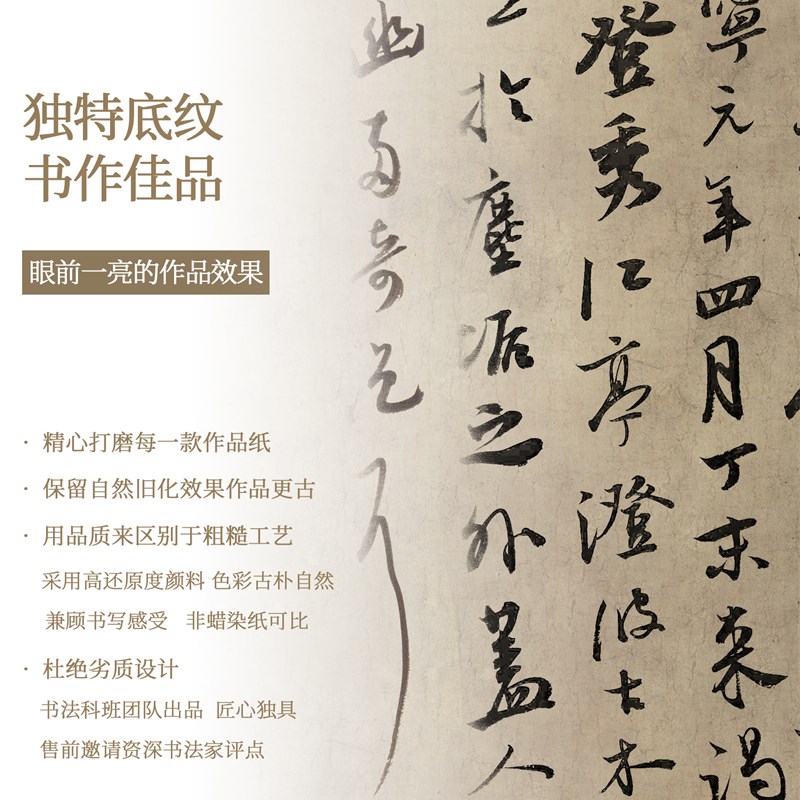 独特底纹
书作佳品
眼前一亮的作品效果
· 精心打磨每一款作品纸
· 保留自然旧化效果作品更古
· 用品质来区别于粗糙工艺
采用高还原度颜料 色彩古朴自然
兼顾书写感受 非蜡染纸可比
· 杜绝劣质设计
书法科班团队出品 匠心独具
售前邀请资深书法家评点
寧元年四月丁未来謁
登秀江亭澄波古木
於塵垢之外蓋人
幽而奇已